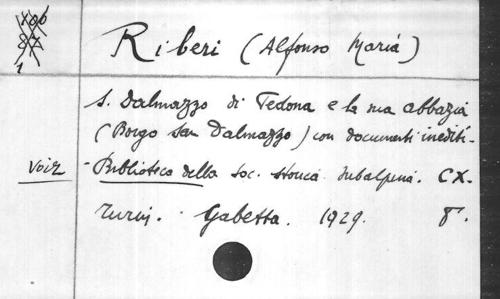 Riberi (Alfonso Maria)
S. Dalmazzo di Pedona e la sua abbazia
(Borgo San Dalmazzo) con documenti inediti -
Voir - Biblioteca della Soc. storica subalpina. CX.
Turin. Gabetta. 1929. 8°.